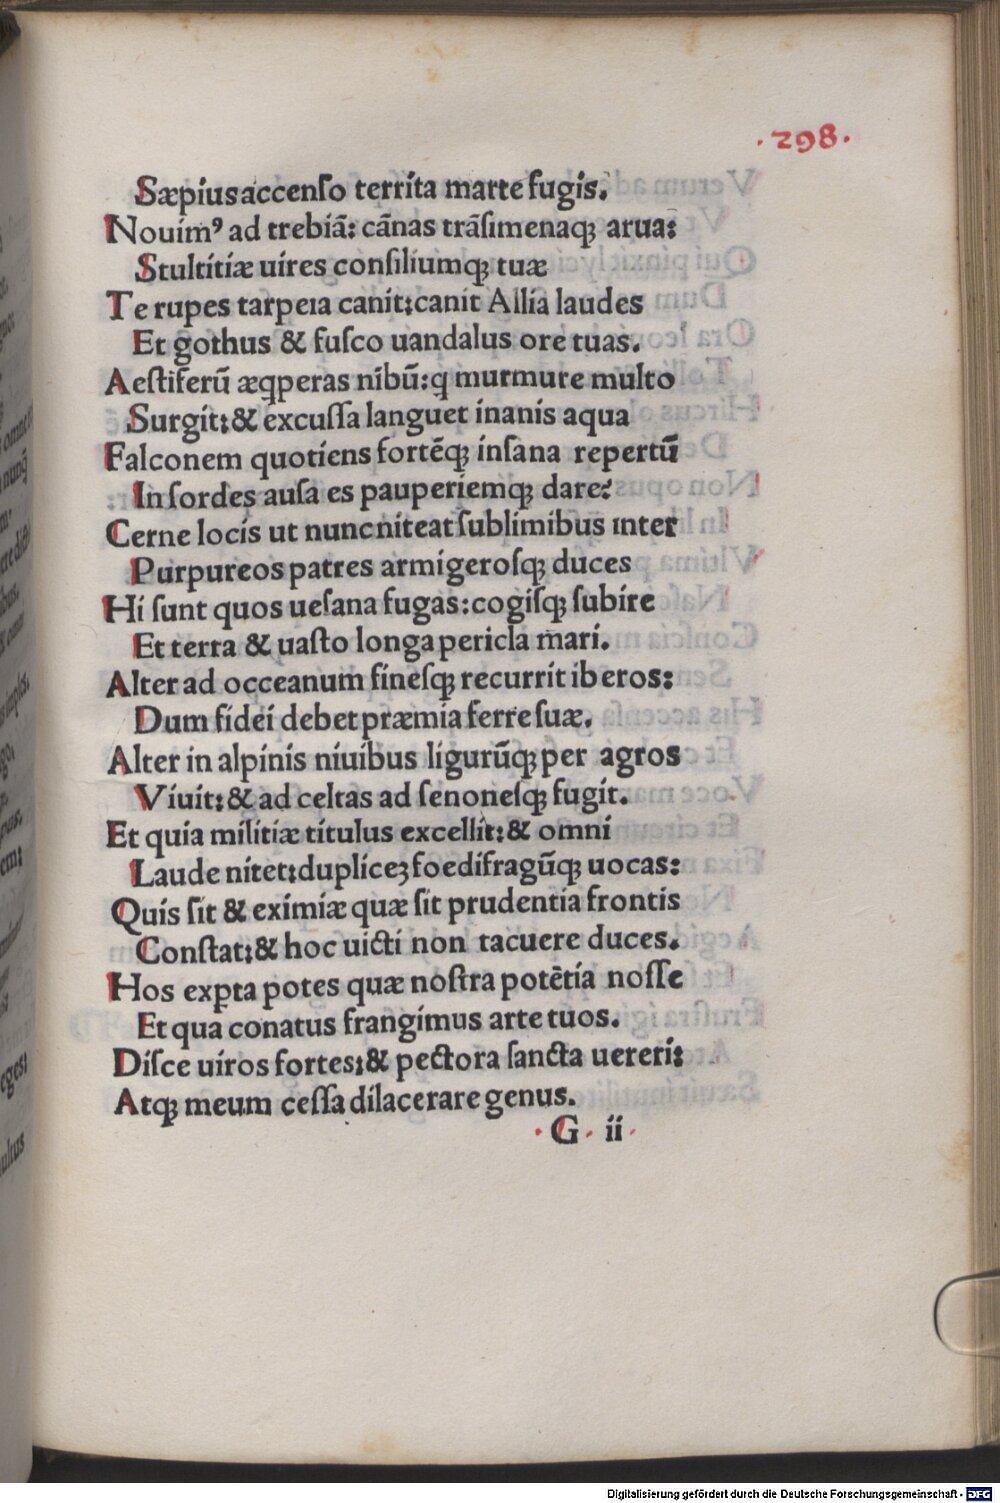 .298.
Sæpius accenſo territa marte fugis.
Nouimꝰ ad trebiā: cānas trāſimenaqꝫ arua:
Stultitiæ uires conſiliumqꝫ tuæ
Te rupes tarpeia canit: canit Allia laudes
Et gothus & fuſco uandalus ore tuas.
Aeſtiferū æqꝑeras nibū: q̄ murmure multo
Surgit: & excuſſa languet inanis aqua
Falconem quotiens fortēqꝫ inſana repertū
In ſordes auſa es pauperiemqꝫ dare?
Cerne locis ut nunc niteat ſublimibus inter
Purpureos patres armigeroſqꝫ duces
Hi ſunt quos ueſana fugas: cogiſqꝫ ſubire
Et terra & uaſto longa pericla mari.
Alter ad occeanum fineſqꝫ recurrit iberos:
Dum fidei debet præmia ferre ſuæ.
Alter in alpinis niuibus ligurūqꝫ per agros
Viuit: & ad celtas ad ſenoneſqꝫ fugit.
Et quia militiæ titulus excellit: & omni
Laude nitet: dupliceꝫ foedifragūqꝫ uocas:
Quis ſit & eximiæ quæ ſit prudentia frontis
Conſtat: & hoc uicti non tacuere duces.
Hos exꝑta potes quæ noſtra potētia noſſe
Et qua conatus frangimus arte tuos.
Diſce uiros fortes: & pectora ſancta uereri:
Atqꝫ meum ceſſa dilacerare genus.
.G. ii.
Digitalisierung gefördert durch die Deutsche Forschungsgemeinschaft - DFG